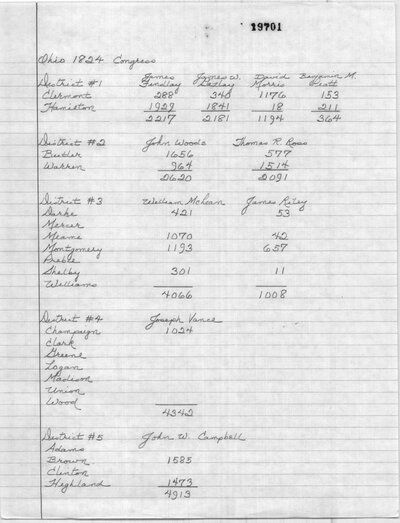 19701
Ohio 1824 Congress
James James W. David Benjamin M.
District #1 Findlay Gazlay Morris Piatt
Clermont 288 340 1176 153
Hamilton 1929 1841 18 211
2217 2181 1194 364
District #2 John Woods Thomas R. Ross
Butler 1656 577
Warren 964 1514
2620 2091
District #3 William McLean James Riley
Darke 421 53
Mercer
Miami 1070 42
Montgomery 1193 657
Preble
Shelby 301 11
Williams
4066 1008
District #4 Joseph Vance
Champaign 1024
Clark
Greene
Logan
Madison
Union
Wood
4342
District #5 John W. Campbell
Adams
Brown 1585
Clinton
Highland 1473
4913